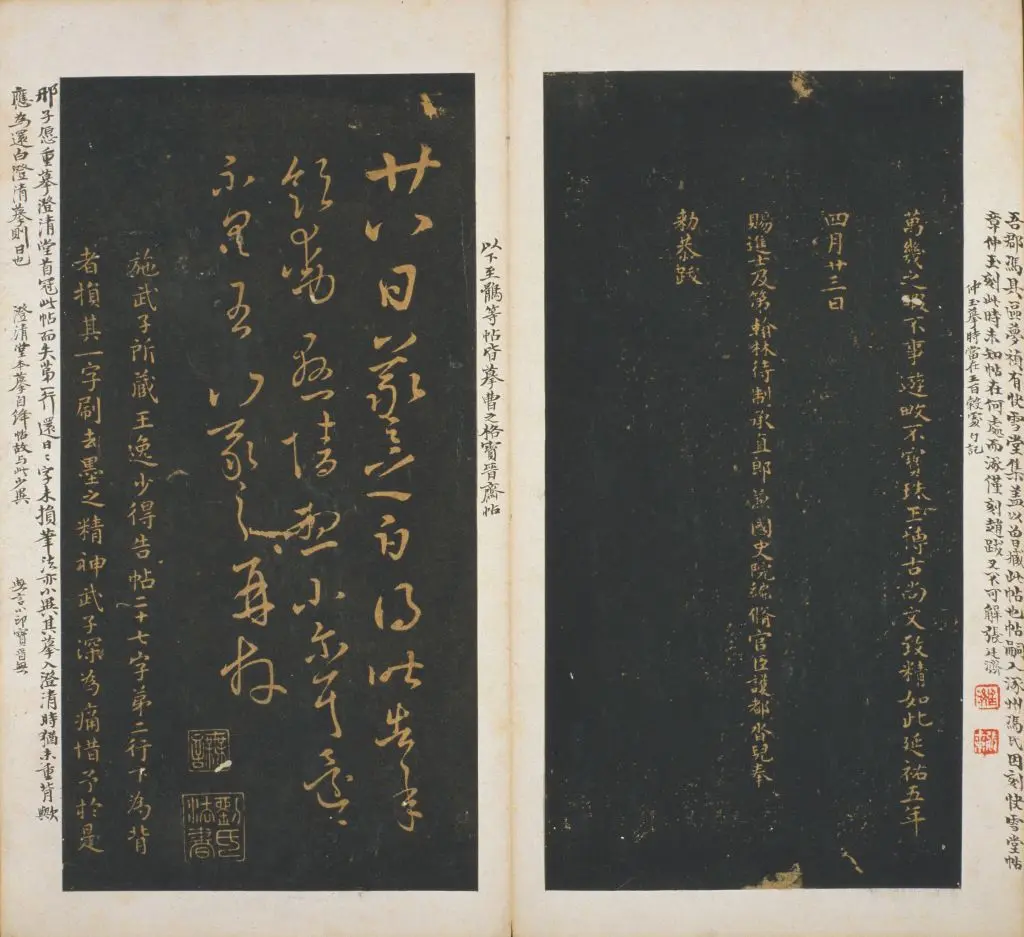 吾郡馮具區夢禎有快雪堂集盖以曾藏此帖也帖嗣入涿州馮氏因刻快雪堂帖
章仲玉刻此時未知帖在何處而涿僅刻趙跋又不可解張廷濟
仲玉摹時當在王百穀處又記
萬幾之暇不事遊畋不寶珠玉博古尚文致精如此延祐五年
四月廿三日
賜進士及第翰林待制承直郎兼國史院編脩官臣護都沓兒奉
勑恭跋
以下至鵝等帖皆摹曹之格寶晉齋帖
廿八日羲之白得昨告承
飲動懸情想小爾耳還
不具羲之再拜
無言
劉氏法書
施武子所藏王逸少得告帖二十七字第二行下為背
者損其一字刷去墨之精神武子深為痛惜予於是
邢子愿重摹澄清堂首冠此帖而失第一行還日日字未損筆法亦小異其摹入澄清時猶未重背歟
應為還白澄清摹則日也
澄清堂本摹自絳帖故与此少異
無言小印寶晉無